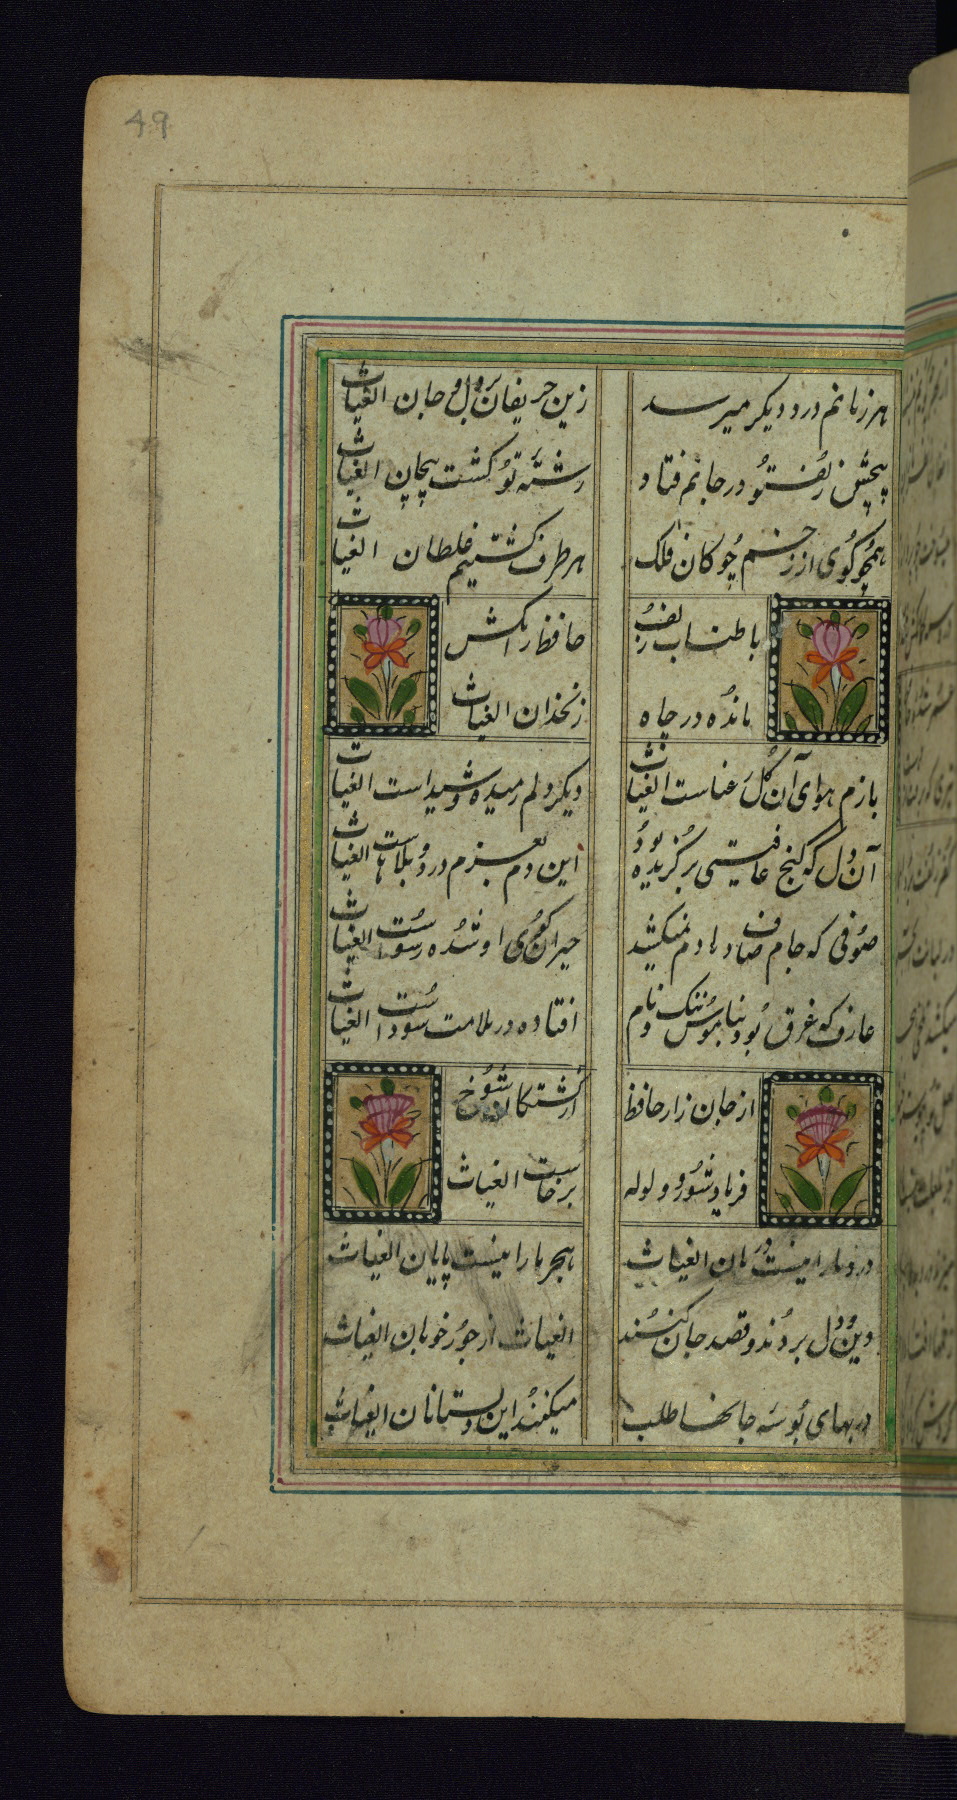 49
هر زمانم درد دیگر میرسد زین حریفان بر دل و جان الغیاث
پیچش زلف تو در جانم فتاد رشته تو گشت پیچان الغیاث
همچو گوی از زخم چوگان فلک هر طرف گشتیم غلطان الغیاث
با طناب زلف حافظ را بکش
مانده در چاه زنخدان الغیاث
بازم هوای آن گل رعناست الغیاث دیگر دلم رمیده و شیداست الغیاث
آن دل که کنج عافیتی برگزیده بود این دم بعزم درد و بلاهاست الغیاث
صوفی که جام صاف دمادم نمیکشید حیران کوی او شده رسواست الغیاث
عارف که غرق بود بناموس و ننگ و نام افتاده در ملامت سوداست الغیاث
از جان زار حافظ از کشتگان شوخ
فریاد و شور و ولوله برخاست الغیاث
درد ما را نیست درمان الغیاث هجر ما را نیست پایان الغیاث
دین و دل بردند و قصد جان کنند الغیاث از جور خوبان الغیاث
در بهای بوسه جانها طلب میکنند این دلستانان الغیاث